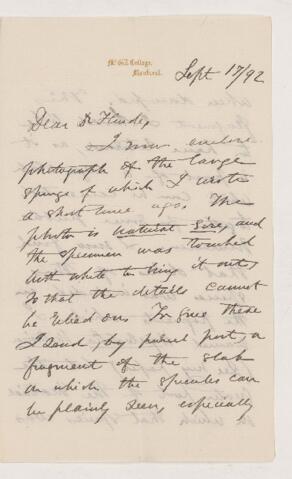 McGill College,
Montreal.
Sept 17/92
Dear Dr Hinde,
I now enclose
photograph of the large
sponge of which I wrote
a short time ago. The
photo is natural size, and
the specimen was touched
with white to bring it out,
so that the details cannot
be relied on. To give these
I send, by parcel post, a
fragment of the slab
on which the spicules can
be plainly seen, especially